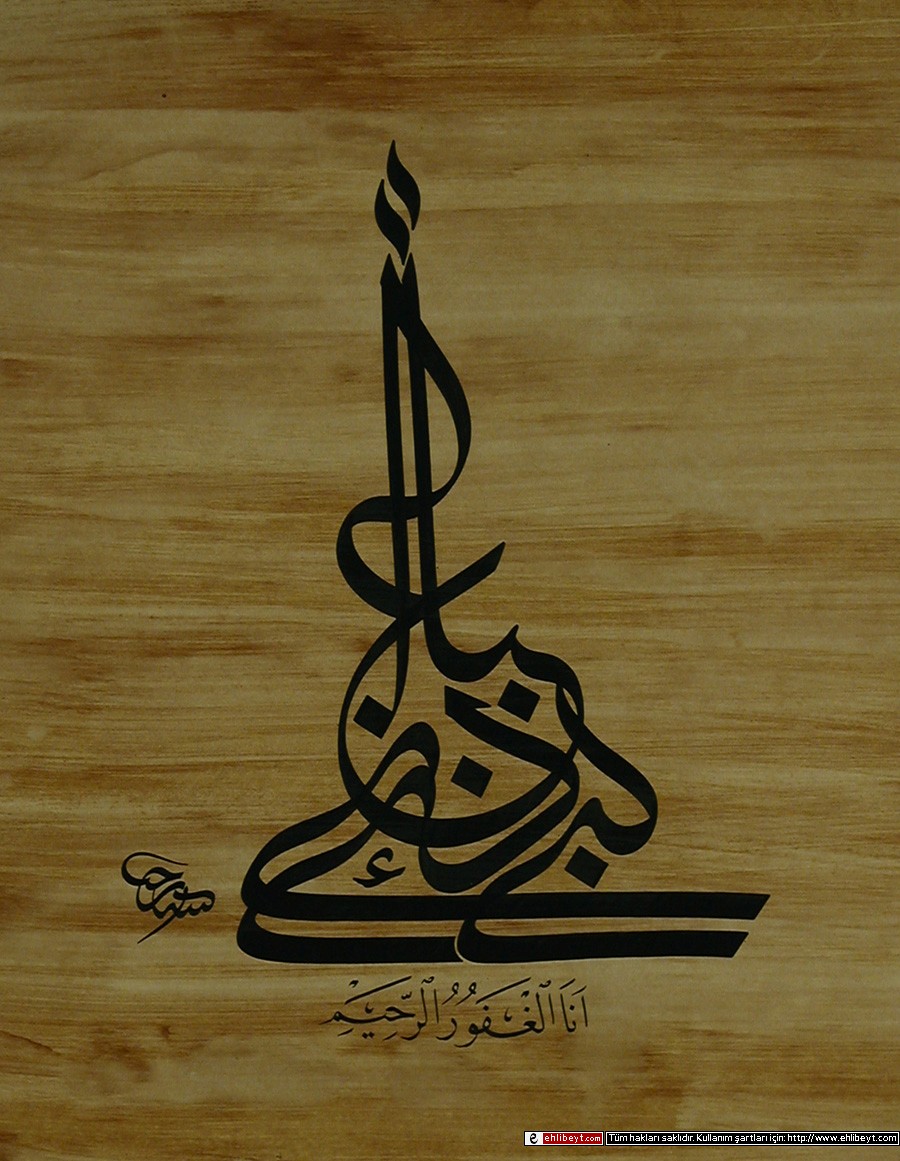 نبئ عبادي أني
اَنَا الْغَفُورُ الرَّحِيمُ
ehlibeyt.com Tüm hakları saklıdır. Kullanım şartları için: http://www.ehlibeyt.com